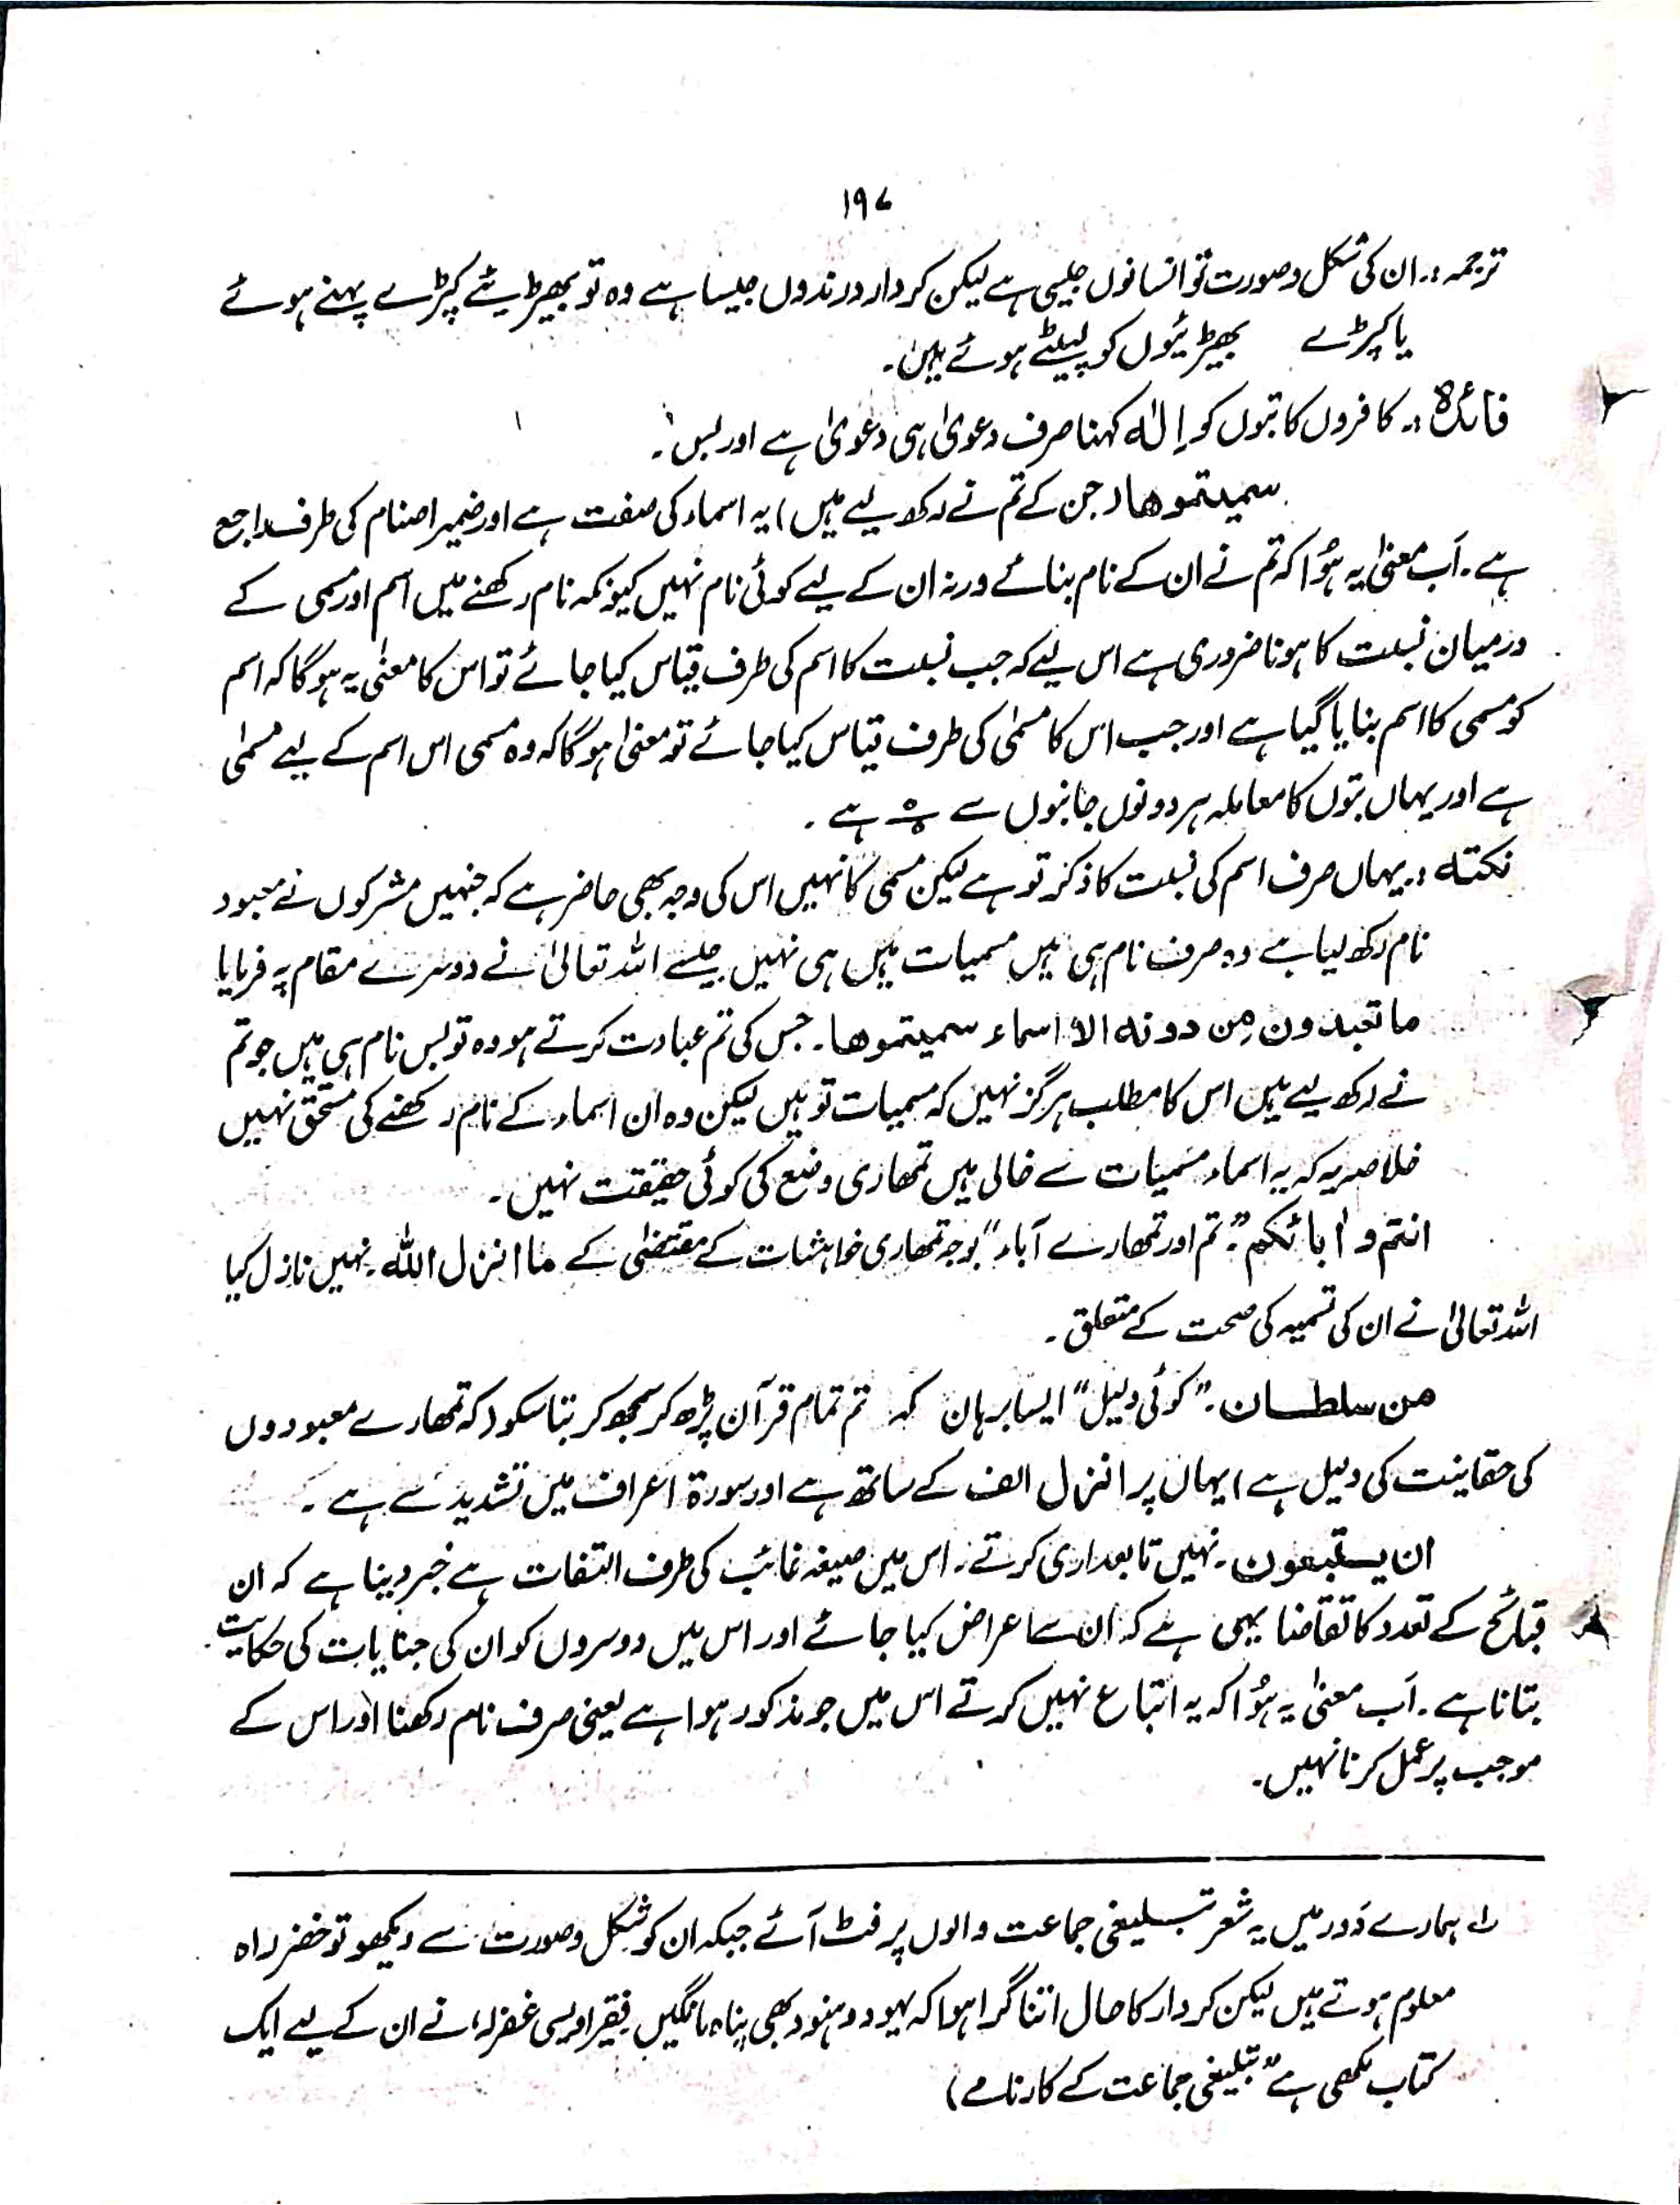 ۱۹۷
ترجمہ :۔ ان کی شکل و صورت تو انسانوں جیسی ہے لیکن کردار درندوں جیسا ہے وہ تو بھیڑیئے کپڑے پہنے ہوئے
یا کپڑے بھیڑیئوں کو لپیٹے ہوئے ہیں۔
فائدہ :۔ کافروں کا بتوں کو إلٰہ کہنا صرف دعویٰ ہی دعویٰ ہے اور بس ۔
سمیتموھا (جن کے تم نے رکھ لیے ہیں) یہ اسماء کی صفت ہے اور ضمیر اصنام کی طرف راجع
ہے۔ اَب معنیٰ یہ ہُوا کہ تم نے ان کے نام بنائے ورنہ ان کے لیے کوئی نام نہیں کیونکہ نام رکھنے میں اسم اور مسمی کے
درمیان نسبت کا ہونا ضروری ہے اس لیے کہ جب نسبت کا اسم کی طرف قیاس کیا جائے تو اس کا معنیٰ یہ ہوگا کہ اسم
کو مسمی کا اسم بنایا گیا ہے اور جب اس کا مسمٰی کی طرف قیاس کیا جائے تو معنیٰ ہوگا کہ وہ مسمی اس اسم کے لیے مسمٰی
ہے اور یہاں بتوں کا معاملہ ہر دونوں جانبوں سے ہے ۔
نکتہ :۔ یہاں صرف اسم کی نسبت کا ذکر تو ہے لیکن مسمی کا نہیں اس کی وجہ بھی حاضر ہے کہ جنہیں مشرکوں نے معبود
نام رکھ لیا ہے وہ صرف نام ہی ہیں مسمیات ہیں ہی نہیں جیسے اللہ تعالیٰ نے دوسرے مقام پہ فرمایا
ما تعبدون من دونہ الا اسماء سمیتموھا۔ جس کی تم عبادت کرتے ہو وہ تو بس نام ہی ہیں جو تم
نے رکھ لیے ہیں اس کا مطلب ہرگز نہیں کہ مسمیات تو ہیں لیکن وہ ان اسماء کے نام رکھنے کی مستحق نہیں
خلاصہ یہ کہ یہ اسماء مسمیات سے خالی ہیں تمھاری وضع کی کوئی حقیقت نہیں ۔
انتم و اٰبائکم "۔ تم اور تمھارے آباء" بوجہ تمھاری خواہشات کے مقتضیٰ کے ما انزل اللہ۔ نہیں نازل کیا
اللہ تعالیٰ نے ان کی تسمیہ کی صحت کے متعلق ۔
من سلطان۔ "کوئی دلیل" ایسا برہان کہ تم تمام قرآن پڑھ کر سمجھ کر بتا سکو (کہ تمھارے معبودوں
کی حقانیت کی دلیل ہے) یہاں پر انزل الف کے ساتھ ہے اور سورۃ اعراف میں تشدید سے ہے ۔
ان یتبعون ۔ نہیں تابعداری کرتے۔ اس میں صیغہ غائب کی طرف التفات ہے خبر دینا ہے کہ ان
قبائح کے تعدد کا تقاضا یہی ہے کہ ان سے اعراض کیا جائے اور اس میں دوسروں کو ان کی جنایات کی حکایت
بتانا ہے۔ اَب معنیٰ یہ ہُوا کہ یہ اتباع نہیں کرتے اس میں جو مذکور ہوا ہے یعنی صرف نام رکھنا اور اس کے
موجب پر عمل کرنا نہیں۔
لہ ہمارے دَور میں یہ شعر تبلیغی جماعت والوں پر فٹ آئے جبکہ ان کو شکل و صورت سے دیکھو تو خضر راہ
معلوم ہوتے ہیں لیکن کردار کا حال اتنا گرا ہوا کہ یہود و ہنود بھی پناہ مانگیں۔ فقیر اویسی غفرلہٗ نے ان کے لیے ایک
کتاب لکھی ہے "تبلیغی جماعت کے کارنامے)